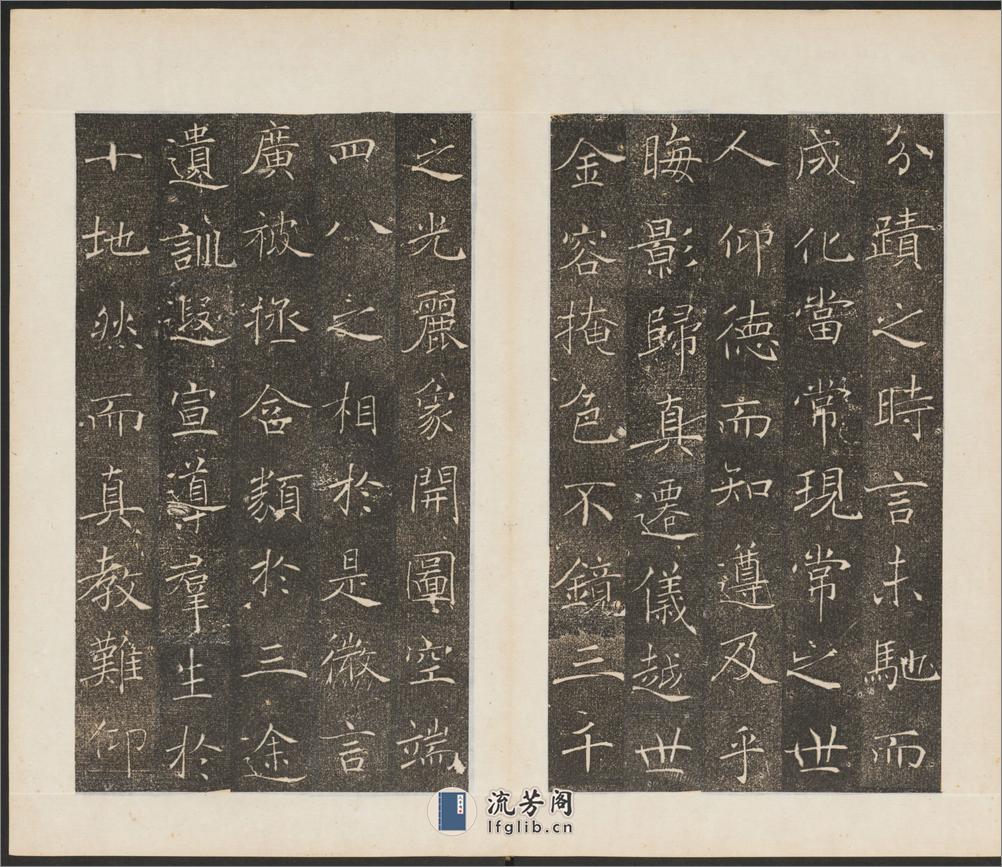 分蹟之時言未馳而
成化當常現常之世
人仰德而知遵及乎
晦影歸真遷儀越世
金容掩色不鏡三千
之光麗象開圖空端
四八之相於是微言
廣被拯含類於三途
遺訓遐宣導羣生於
十地然而真教難仰
流芳阁
lfglib.cn